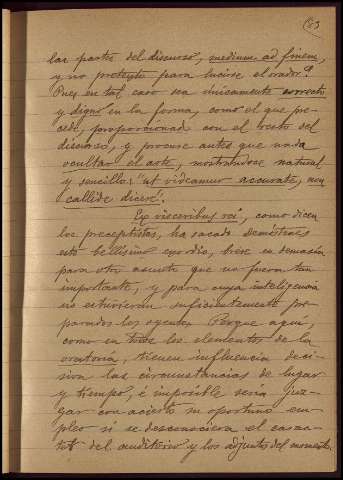 las partes del discurso, medium ad finem,
y no pretexto para lucirse el orador?
Pues en tal caso sea únicamente correcto
y digno en la forma, como el que pre-
cede, proporcionado con el resto del
discurso, y procure antes que nada
ocultar el arte, mostrándose natural
y sencillo: "ut videamur accurate, non
callide dicere".
Ex visceribus rei, como dicen
los preceptistas, ha sacado Demóstenes
este bellísimo exordio, breve en demasía
para otro asunto que no fuera tan
importante, y para cuya inteligencia
no estuvieran suficientemente pre-
parados los oyentes. Porque aquí,
como en todos los elementos de la
oratoria, tienen influencia deci-
siva las circunstancias de lugar
y tiempo, é imposible sería juz-
gar con acierto su oportuno em-
pleo si se desconociera el carác-
ter del auditorio y los adjuntos del momento